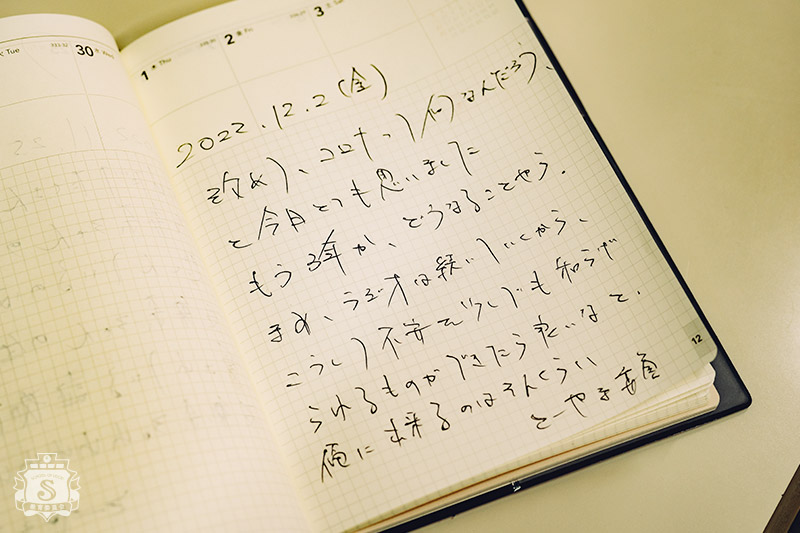 Tue
30
1 木 Thu
2 金 Fri
3
2022.12.2（金）
改めて、コロナって何なんだろう、
と今日とっても思いました
もう3年か、どうなることやら。
まぁ、ラジオは続いていくから、
こうして不安で少しでも和らげ
られるものができたら良いなと。
俺に出来るのはそんくらい
とーやま委員
12
S